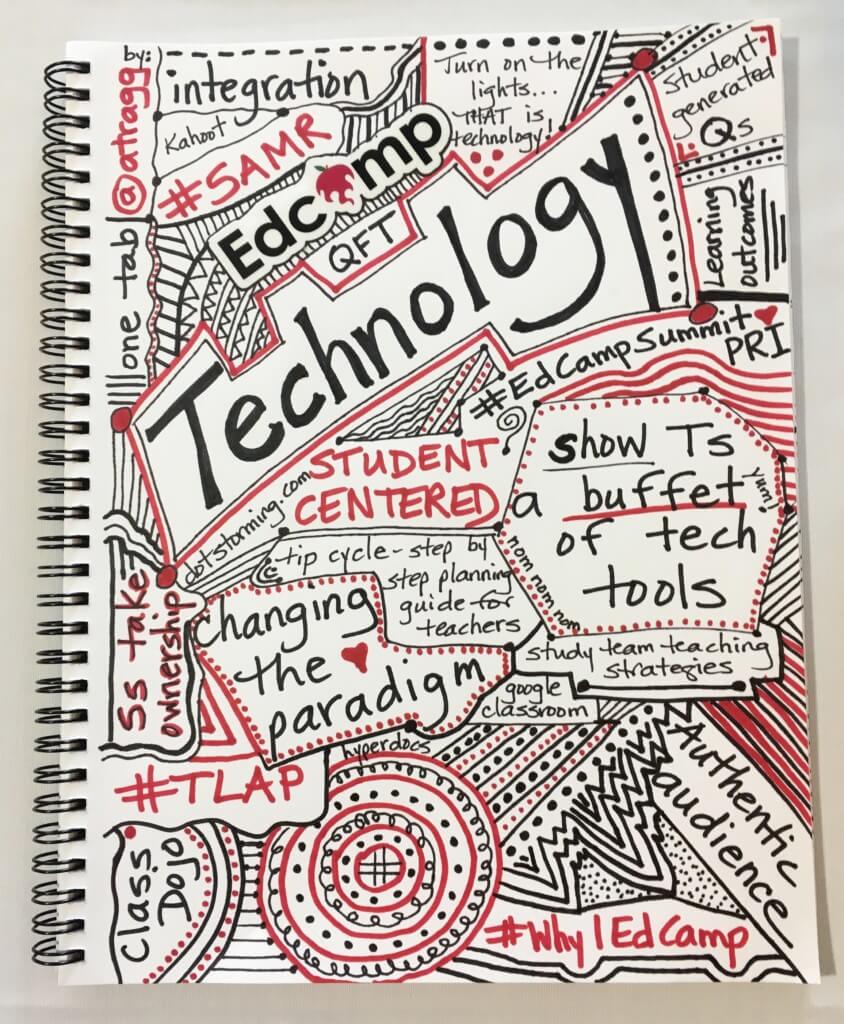 by:
@atragg
integration
Kahoot
#SAMR
Edcamp
QFT
Turn on the
lights...
THAT is
technology!
Student
generated
Qs
Learning
outcomes
one tab
Technology
#EdCampSummit
PRI
dotstorming.com
STUDENT
CENTERED
?
show Ts
a buffet
of tech
tools
yum!
nom nom nom nom
tip cycle - step by
step planning
guide for
teachers
Ss take
ownership
changing
the
paradigm
study team teaching
strategies
google
classroom
hyperdocs
#TLAP
Class
Dojo
Authentic
audience
#WhyIEdCamp